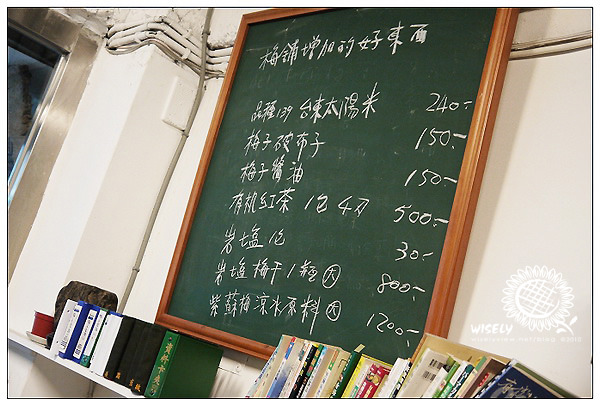 梅鋪增加的好東西
品種139 台東太陽米 240.-
梅子破布子 150.-
梅子醬油 150.-
有机紅茶 1包 4刃 500.-
岩塩1包 30.-
岩塩梅干1瓶大 800.-
紫蘇梅凉水原料大 1200.-
WISELY